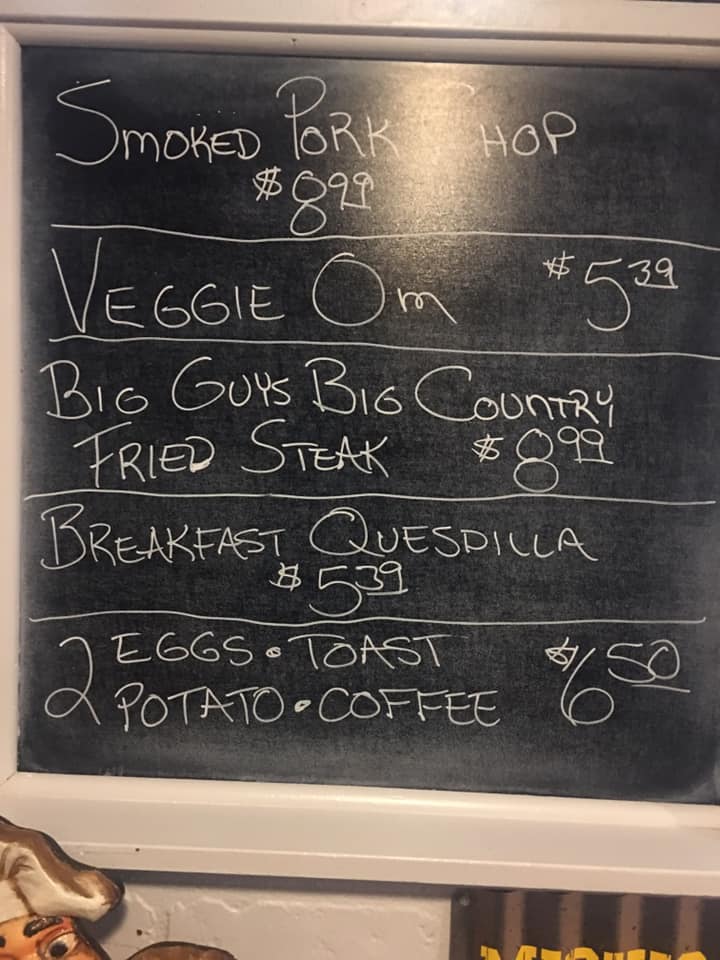 SMOKED PORK CHOP
$8.99
VEGGIE Om $5.39
BIG GUYS BIG COUNTRY
FRIED STEAK $8.99
BREAKFAST QUESDILLA
$5.39
2 EGGS • TOAST $6.50
POTATO • COFFEE